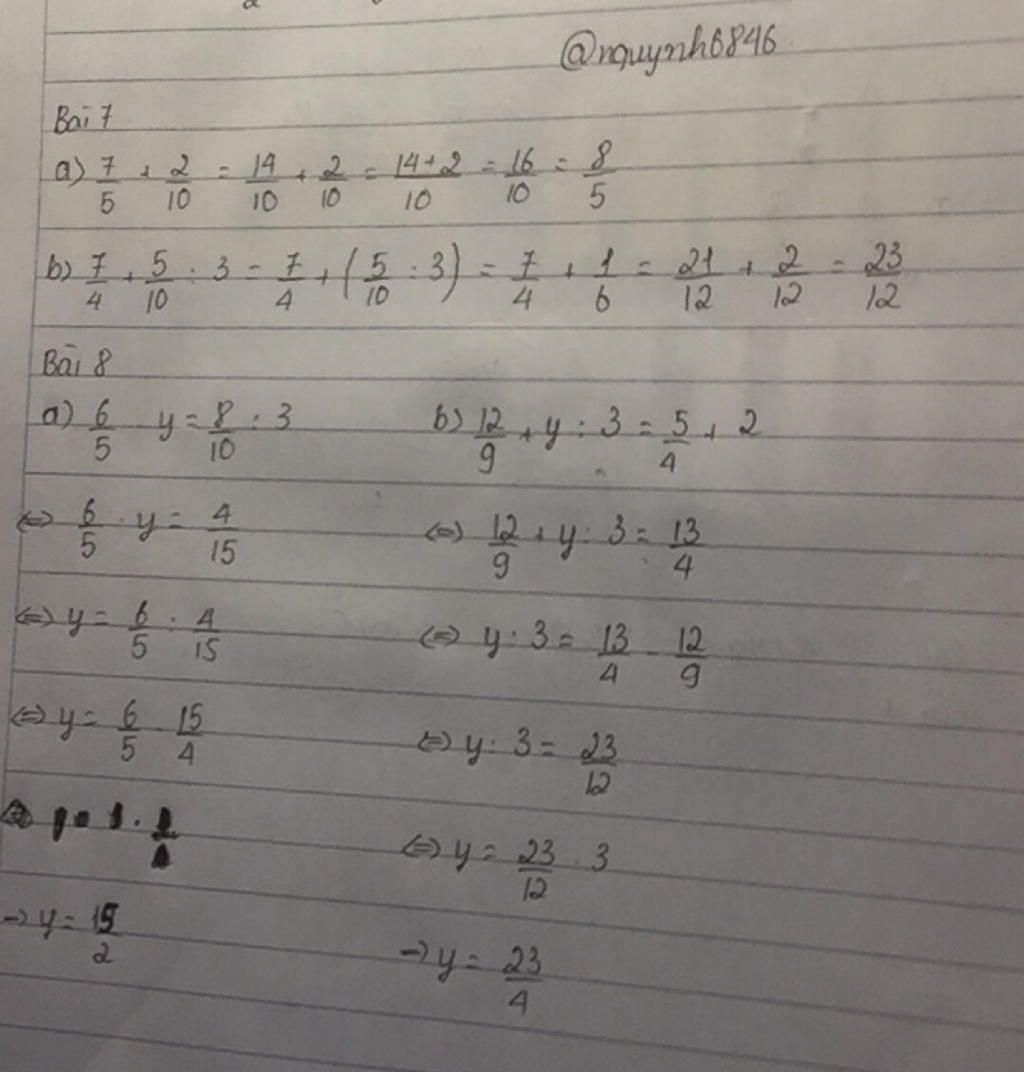 @nquynh6846
Bài 7
a) 7/5 + 2/10 = 14/10 + 2/10 = (14+2)/10 = 16/10 = 8/5
b) 7/4 + 5/10 : 3 = 7/4 + (5/10 : 3) = 7/4 + 1/6 = 21/12 + 2/12 = 23/12
Bài 8
a) 6/5 y = 8/10 : 3
⇔ 6/5 . y = 4/15
⇔ y = 6/5 : 4/15
⇔ y = 6/5 15/4
→ y = 15/2
b) 12/9 + y : 3 = 5/4 + 2
⇔ 12/9 + y : 3 = 13/4
⇔ y : 3 = 13/4 - 12/9
⇔ y : 3 = 23/12
⇔ y = 23/12 . 3
→ y = 23/4